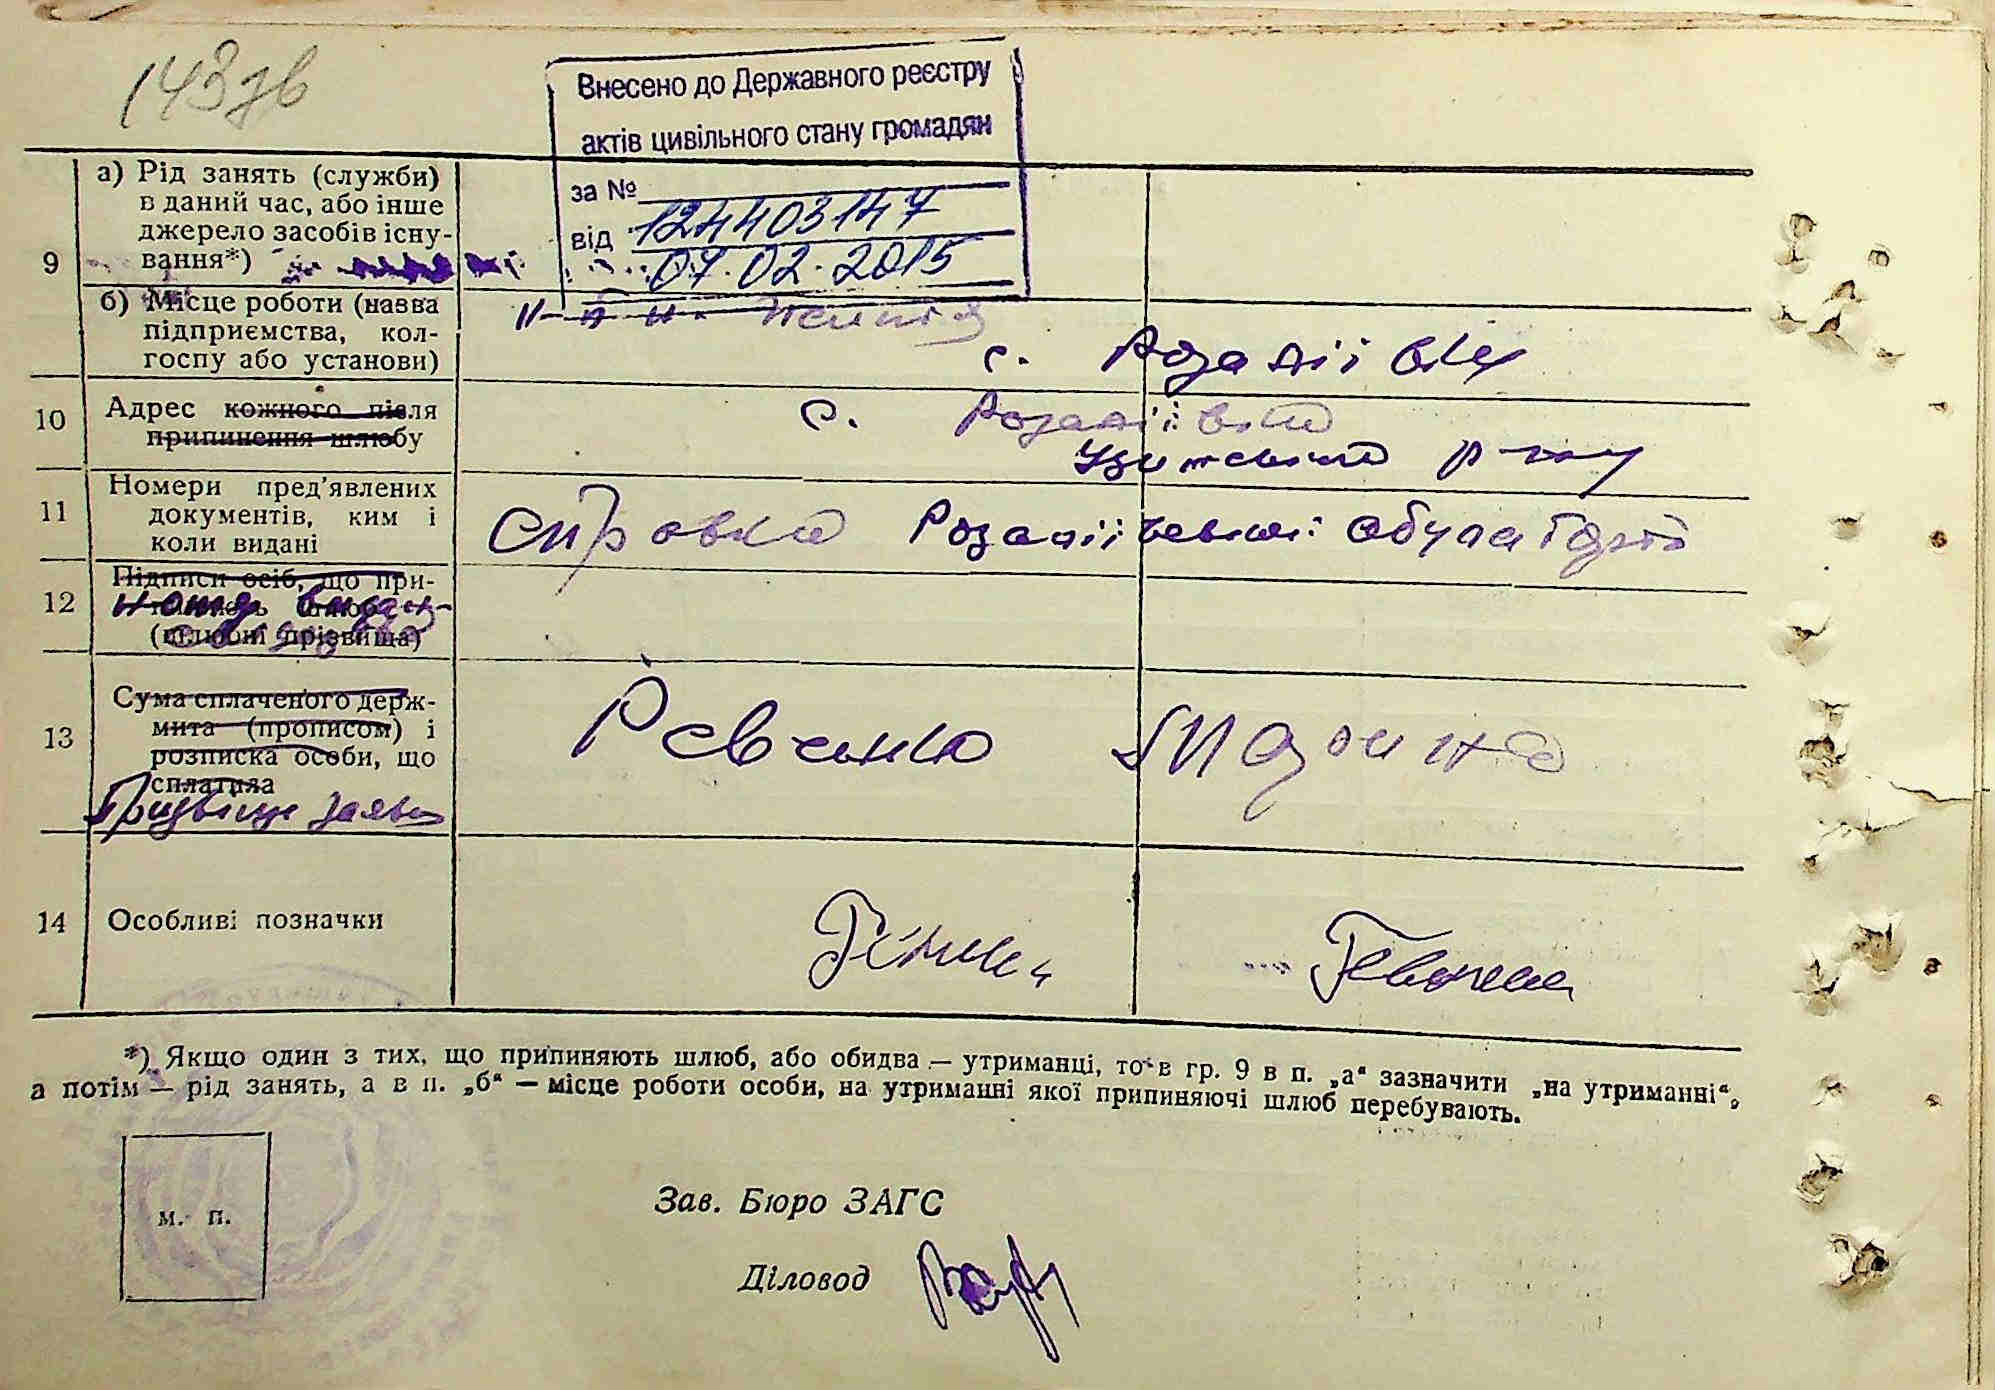 1437в
Внесено до Державного реєстру
актів цивільного стану громадян
за № 124403147
від 07.02.2015
9
а) Рід занять (служби)
в даний час, або інше
джерело засобів існу-
вання*)
б) Місце роботи (назва
підприємства, кол-
госпу або установи)
с. Розаліївка
10
Адрес кожного після
припинення шлюбу
с. Розаліївка
р-ну
11
Номери пред'явлених
документів, ким і
коли видані
справка Розаліївської
12
Підписи осіб, що при-
(шлюбні прізвища)
13
Сума сплаченого держ-
мита (прописом) і
розписка особи, що
сплатила
Прізвище заяв
Ревенко
14
Особливі позначки
*) Якщо один з тих, що припиняють шлюб, або обидва — утриманці, то в гр. 9 в п. „а“ зазначити „на утриманні“,
а потім — рід занять, а в п. „б“ — місце роботи особи, на утриманні якої припиняючі шлюб перебувають.
м. п.
Зав. Бюро ЗАГС
Діловод